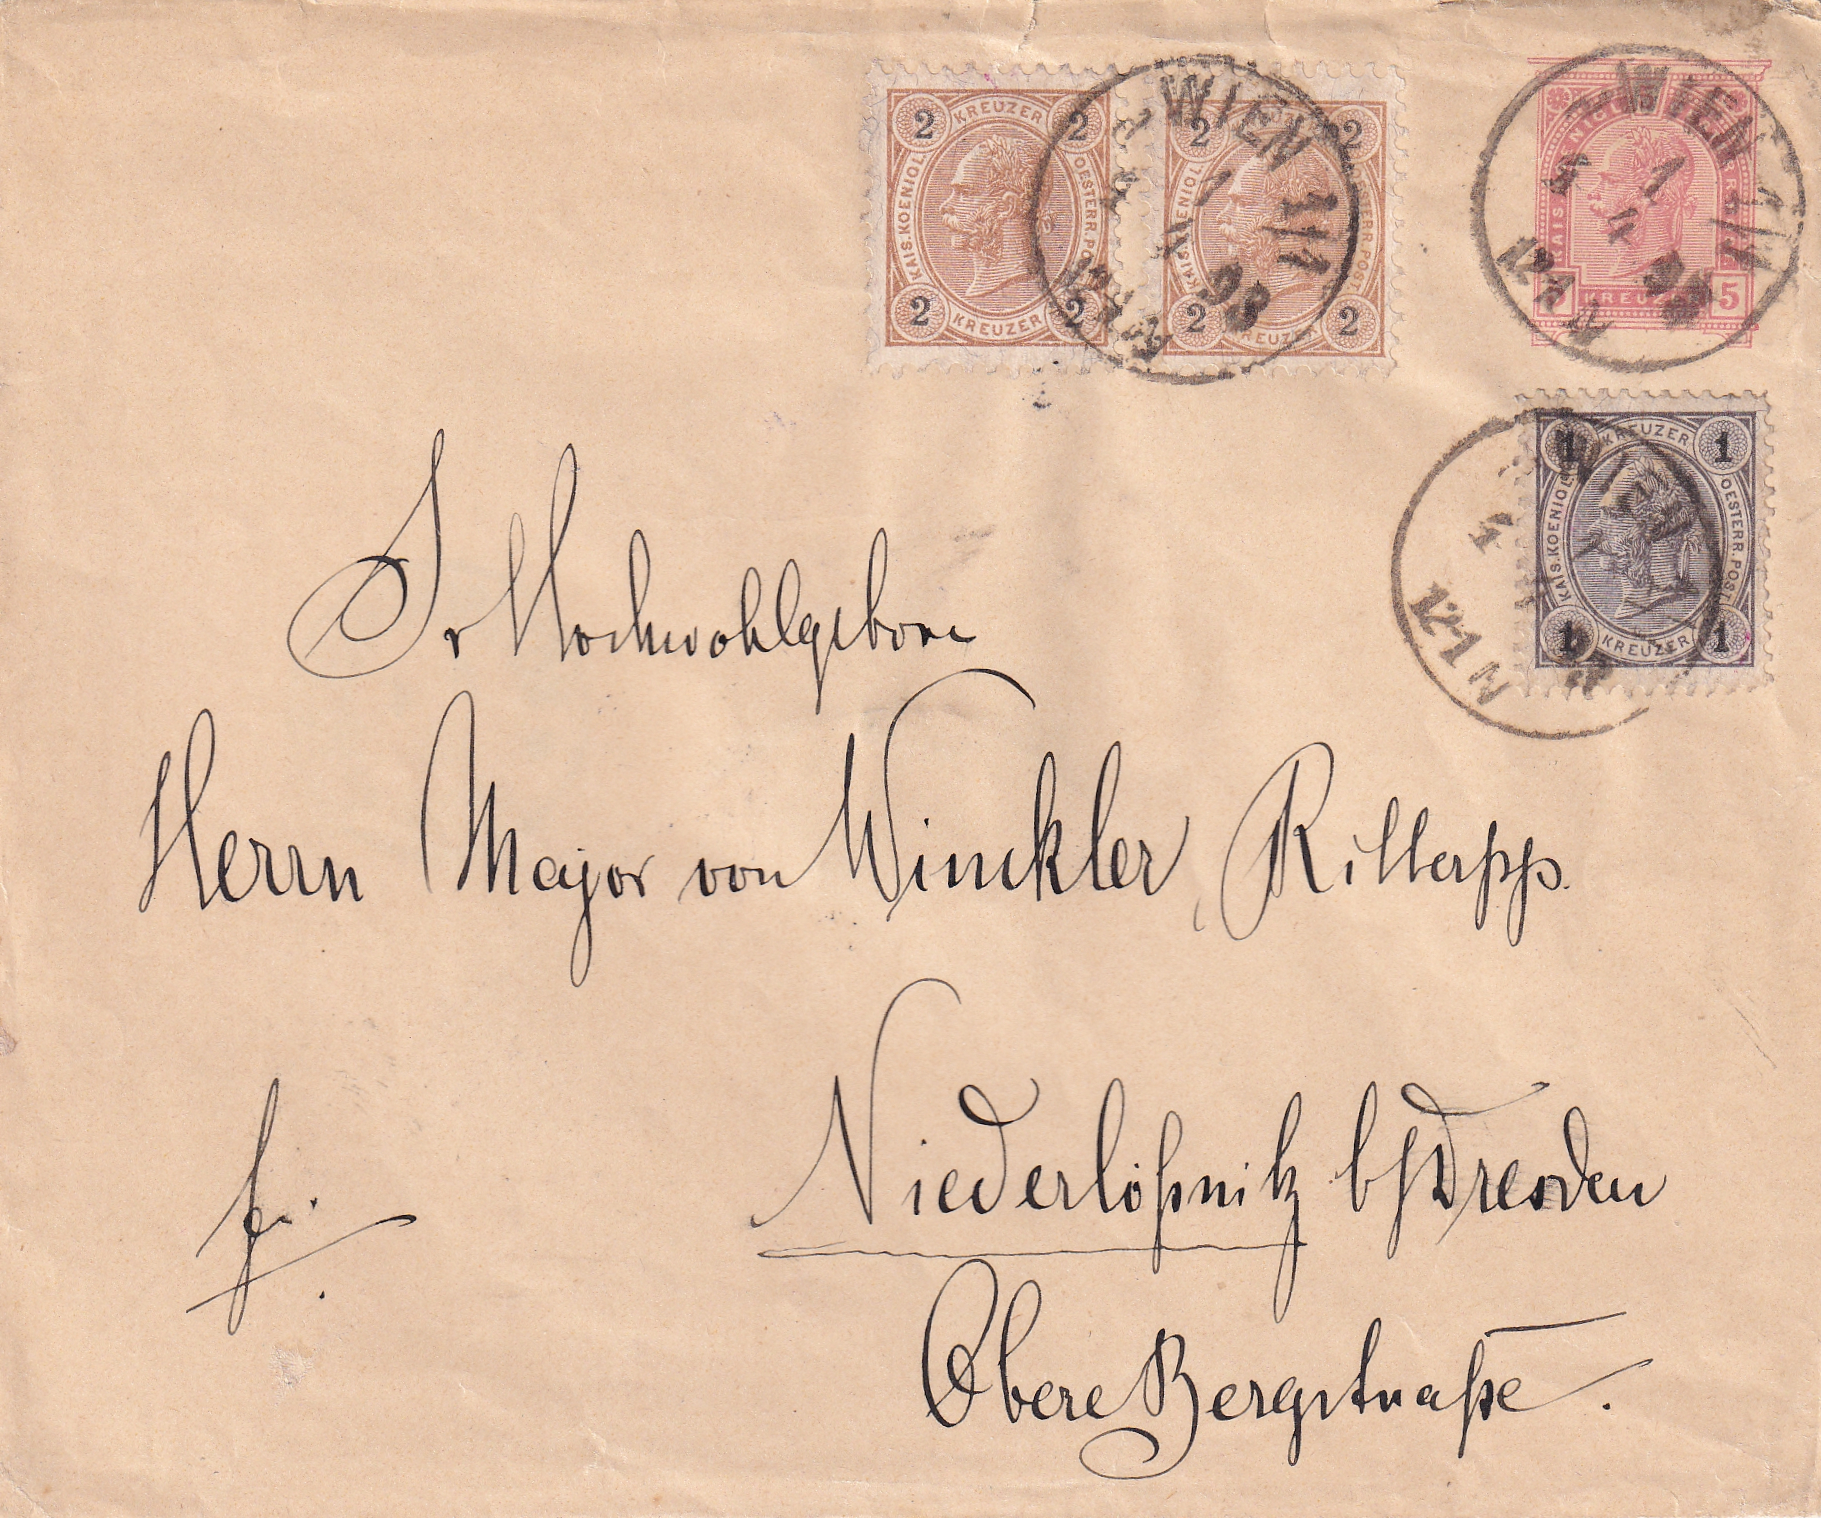 2 KREUZER 2
KAIS. KOENIGL. OESTERR. POST
2 KREUZER 2
2 2
KAIS. KOENIGL. OESTERR. POST
2 KREUZER 2
WIEN 1/1
4
1
98
KAIS. KOENIGL.
KREUZER 5
WIEN 1/1
4 1
12-1 N
1 KREUZER 1
KAIS. KOENIGL. OESTERR. POST
1 KREUZER 1
WIEN
4
12-1 N
Sr Hochwohlgeboren
Herrn Major von Winckler, Ritter pp.
Niederlößnitz b/Dresden
fr.
Obere Bergstraße.